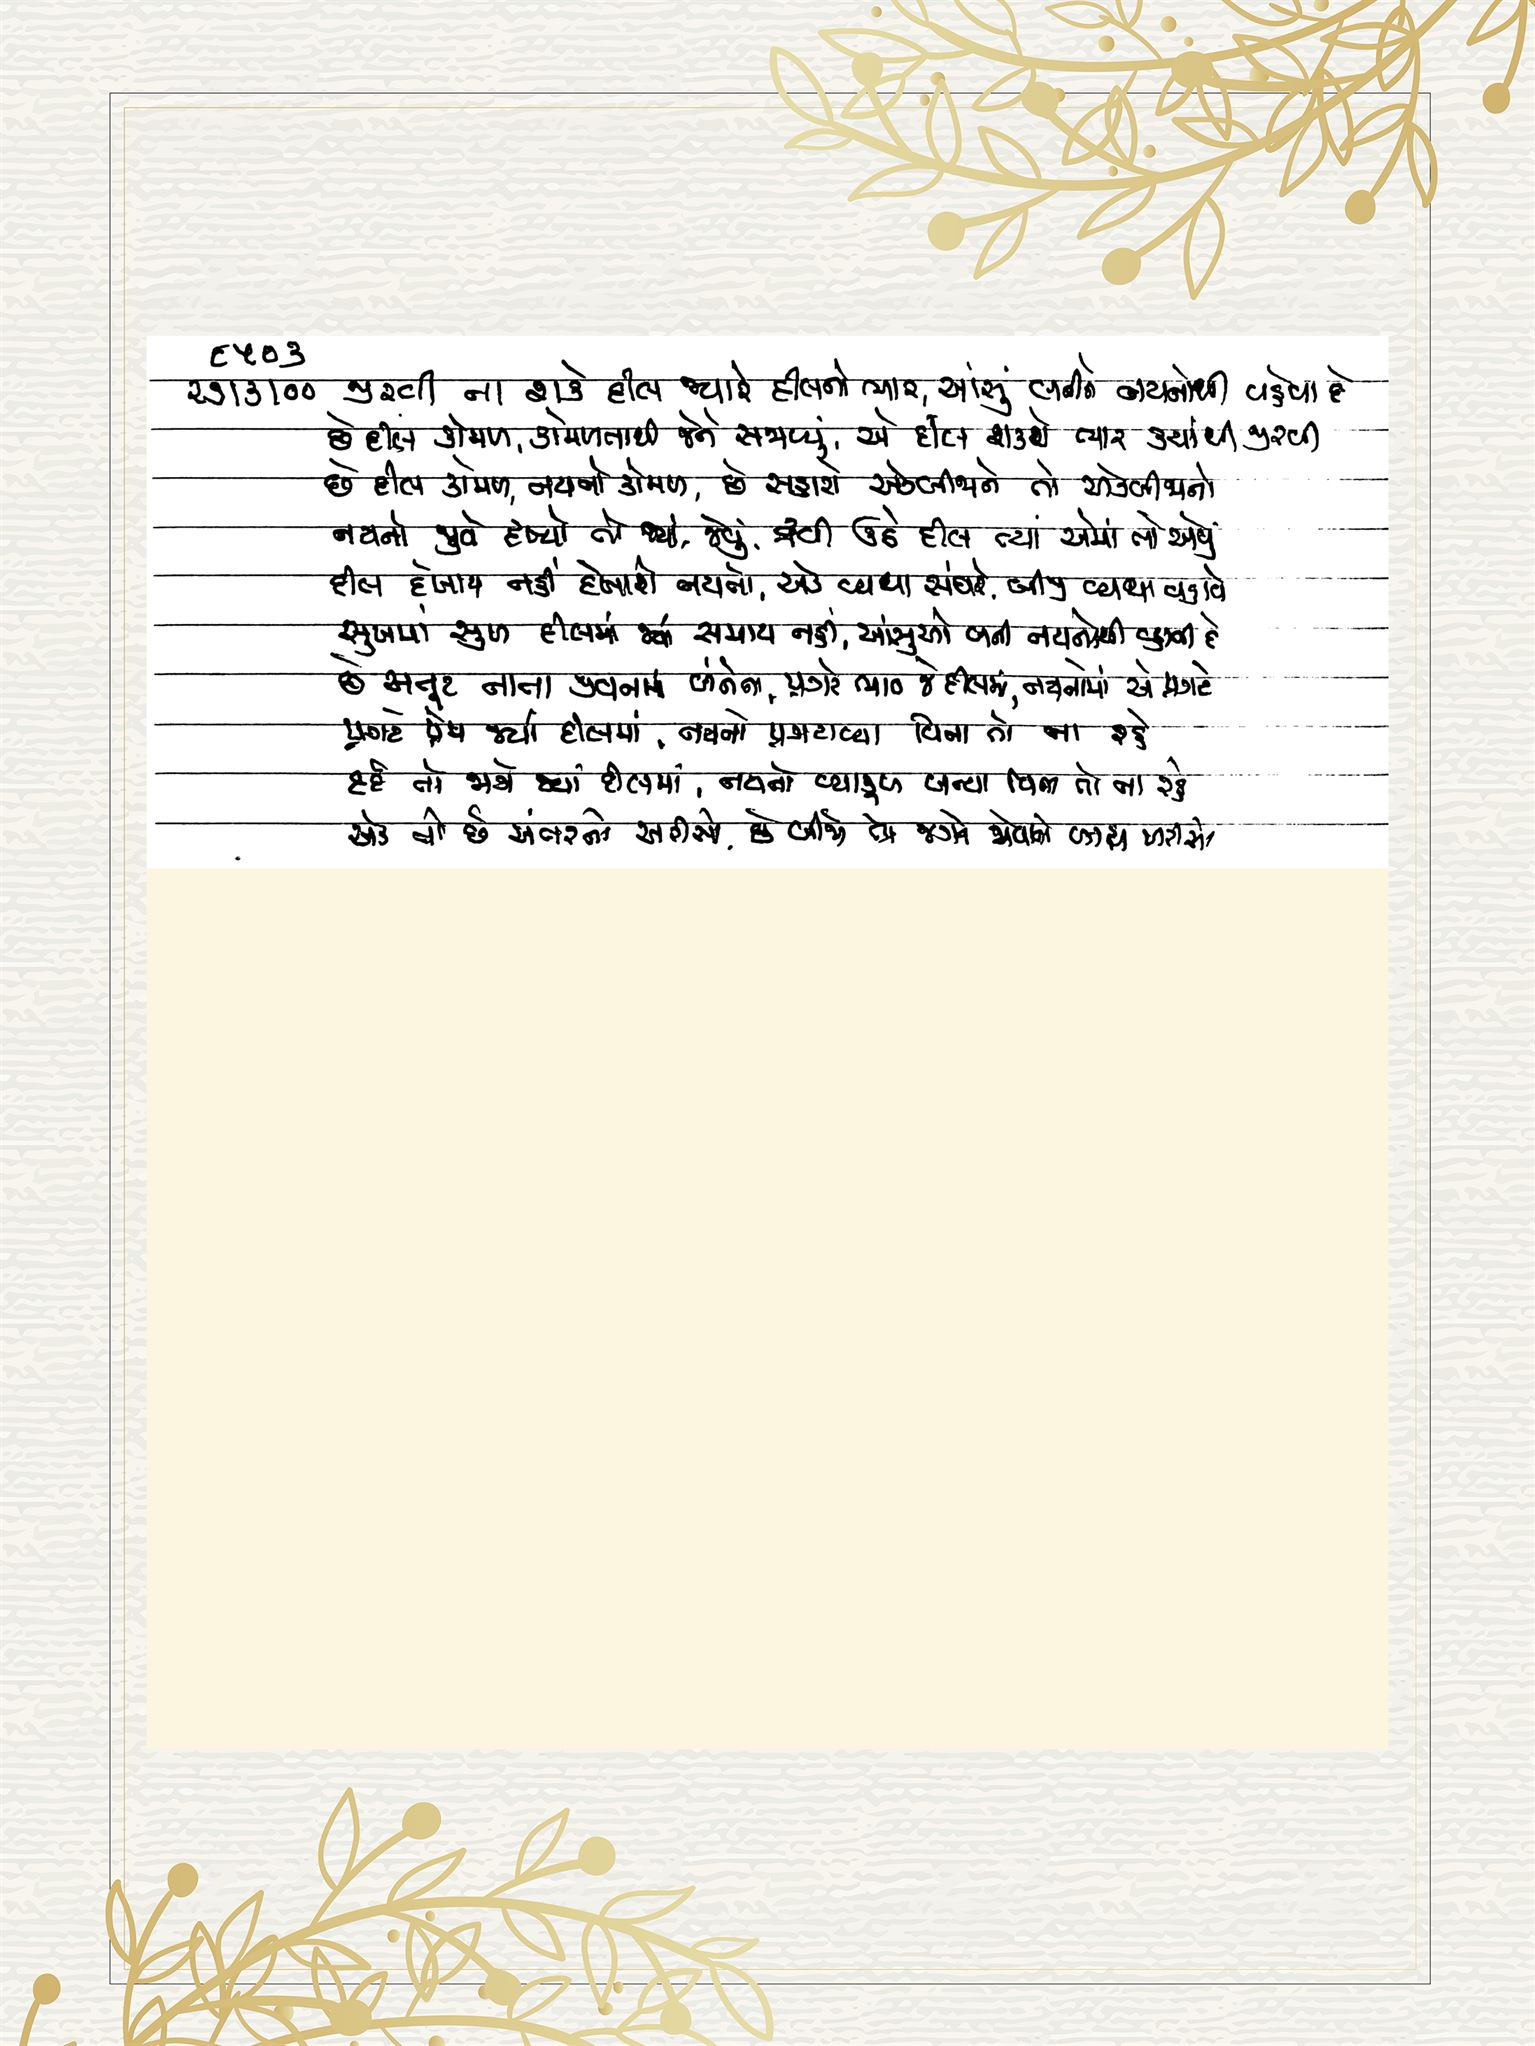 ૯૫૦૩
૨૭।૩।૦૦ જીરવી ના શકે દીલ જ્યારે દીલનો ભાર, આંસું બનીને નયનોથી વહેવા દે
છે દીલ કોમળ, કોમળતાથી જેને સજાવ્યું, એ દીલ શકશે ભાર ક્યાંથી જીરવી
છે દીલ કોમળ, નયનો કોમળ, છે સહારો એકબીજાને તો એકબીજાનો
નયનો જુવે દૃશ્યો તો જ્યાં, જેવું, દ્રવી ઉઠે દીલ ત્યાં એમાં તો એવું
દીલ દેખાય નહીં દેખાશે નયનો, એક વ્યથા સંઘરે, બીજુ વ્યથા વહાવે
સુખમાં સુખ દીલમાં જ્યાં સમાય નહીં, આંસુઓ બની નયનોથી વહાવી દે
છે અતૂટ નાતા જીવનમાં બંનેના, પ્રગટે ભાવ જે દીલમાં, નયનોમાં એ પ્રગટે
પ્રગટે પ્રેમ જ્યાં દીલમાં, નયનો પ્રગટાવ્યા વિના તો ના રહે
દર્દ તો જાગે જ્યાં દીલમાં, નયનો વ્યાકુળ બન્યા વિના તો ના રહે
એક તો છે અંતરનો અરીસો, છે બીજો તો જગને જોવાનો બાહ્ય અરીસો